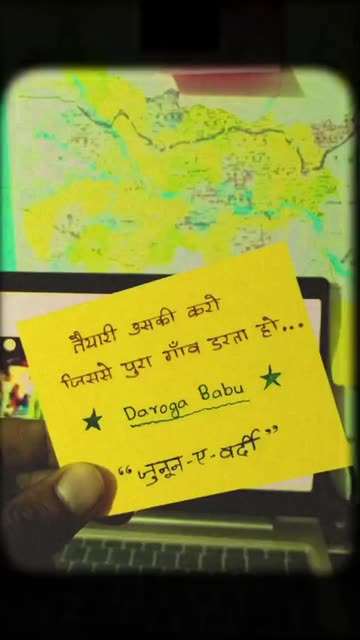 तैयारी उसकी करो
जिससे पुरा गाँव डरता हो...
★ Daroga Babu ★
“जुनून-ए-वर्दी”